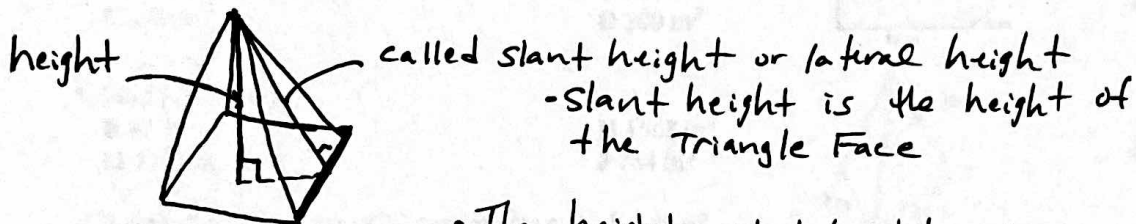 height
called slant height or lateral height
-Slant height is the height of
the Triangle Face
• The height